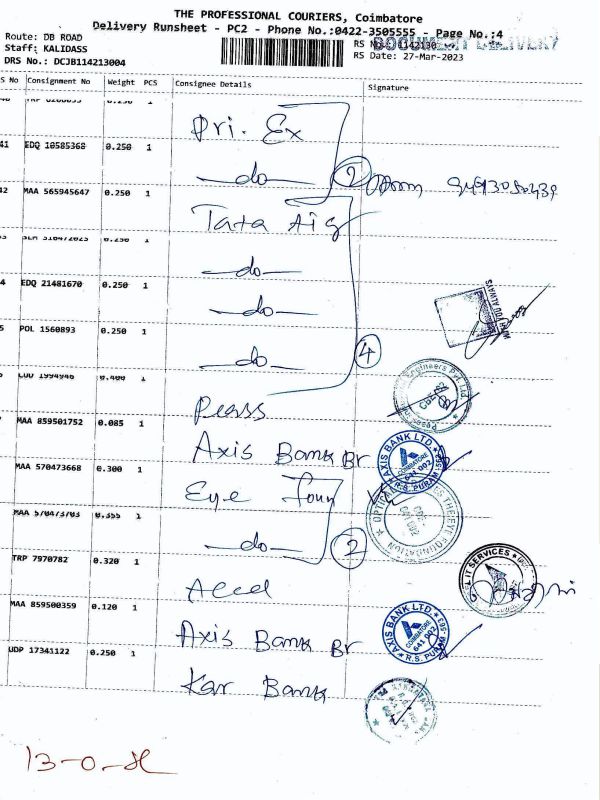 THE PROFESSIONAL COURIERS, Coimbatore
Delivery Runsheet - PC2 - Phone No.:0422-3505555 - Page No.:4
Route: DB ROAD
Staff: KALIDASS
DRS No.: DCJB114213004
DOCUMENT DELIVERY
RS Date: 27-Mar-2023
S No Consignment No Weight PCS Consignee Details Signature
Pri. Ex
41 EDQ 10585368 0.250 1 do
2
42 MAA 565945647 0.250 1 Tata Aig
do
4 EDQ 21481670 0.250 1 do
5 POL 1560893 0.250 1 do
4
WITH YOU ALWAYS
0.400 1 Peass
Engineers Pvt. Ltd
MAA 859501752 0.085 1 Axis Bank Br
AXIS BANK LTD.
COIMBATORE
641 002
R.S. PURAM
MAA 570473668 0.300 1 Eye foun
MAA 570473703 0.355 1 do
2
TRP 7970782 0.320 1
IT SERVICES
MAA 859500359 0.120 1 Axis Bank Br
AXIS BANK LTD.
COIMBATORE
641 002
R.S. PURAM
UDP 17341122 0.250 1 Kar Bank
13-0-